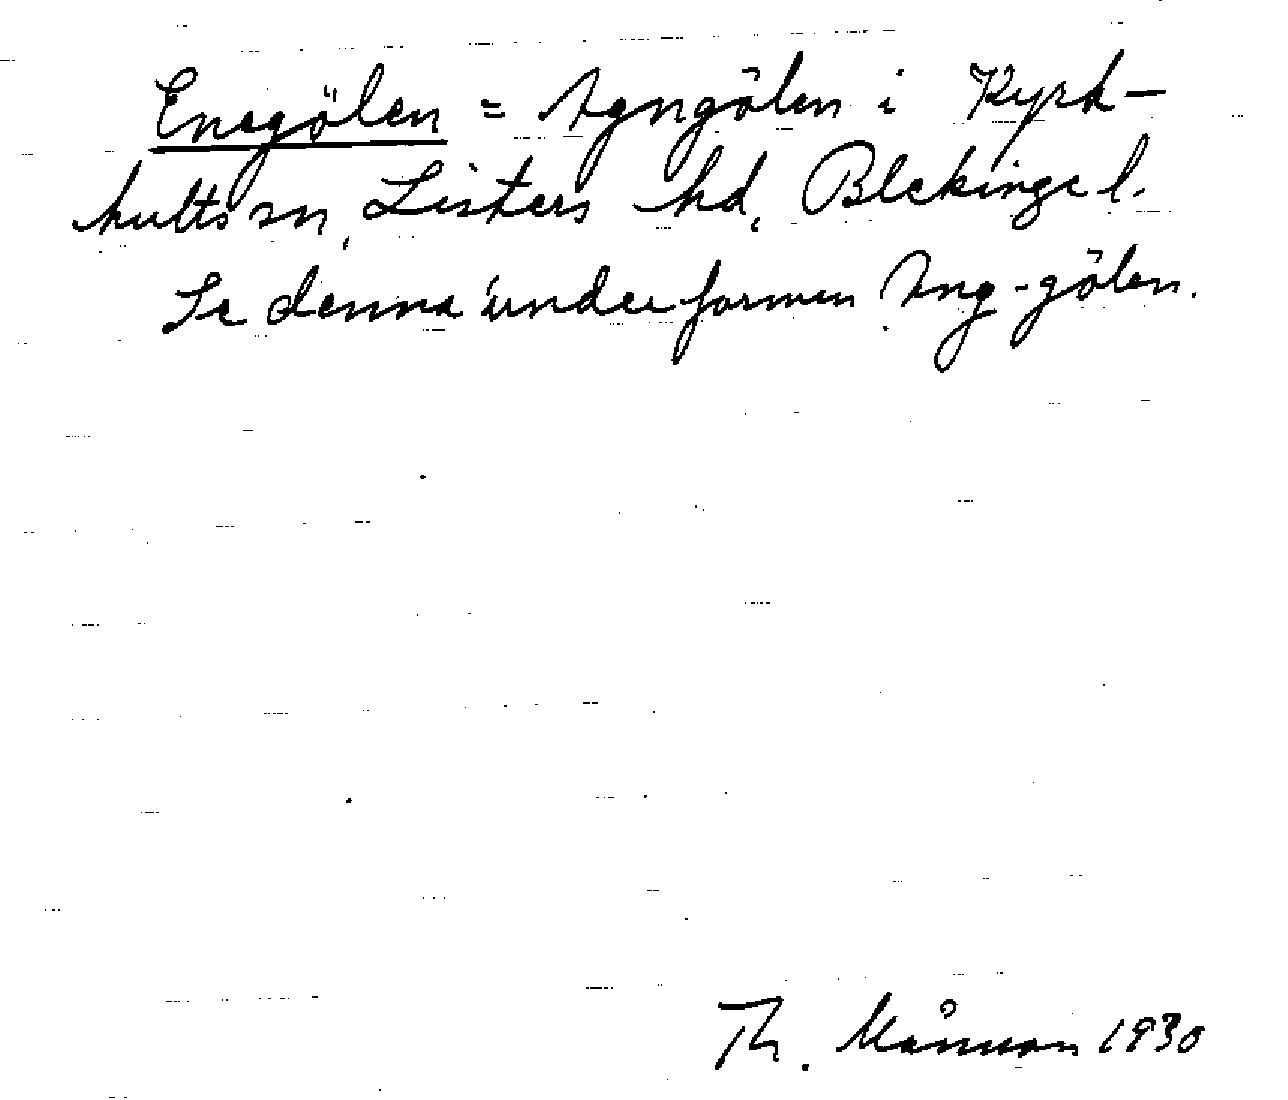 Enegölen = Agngölen i Kyrk-
hults sn, Listers hd, Blekinge l.
Se denna under formen Ang-gölen.
Th. Månsson 1930